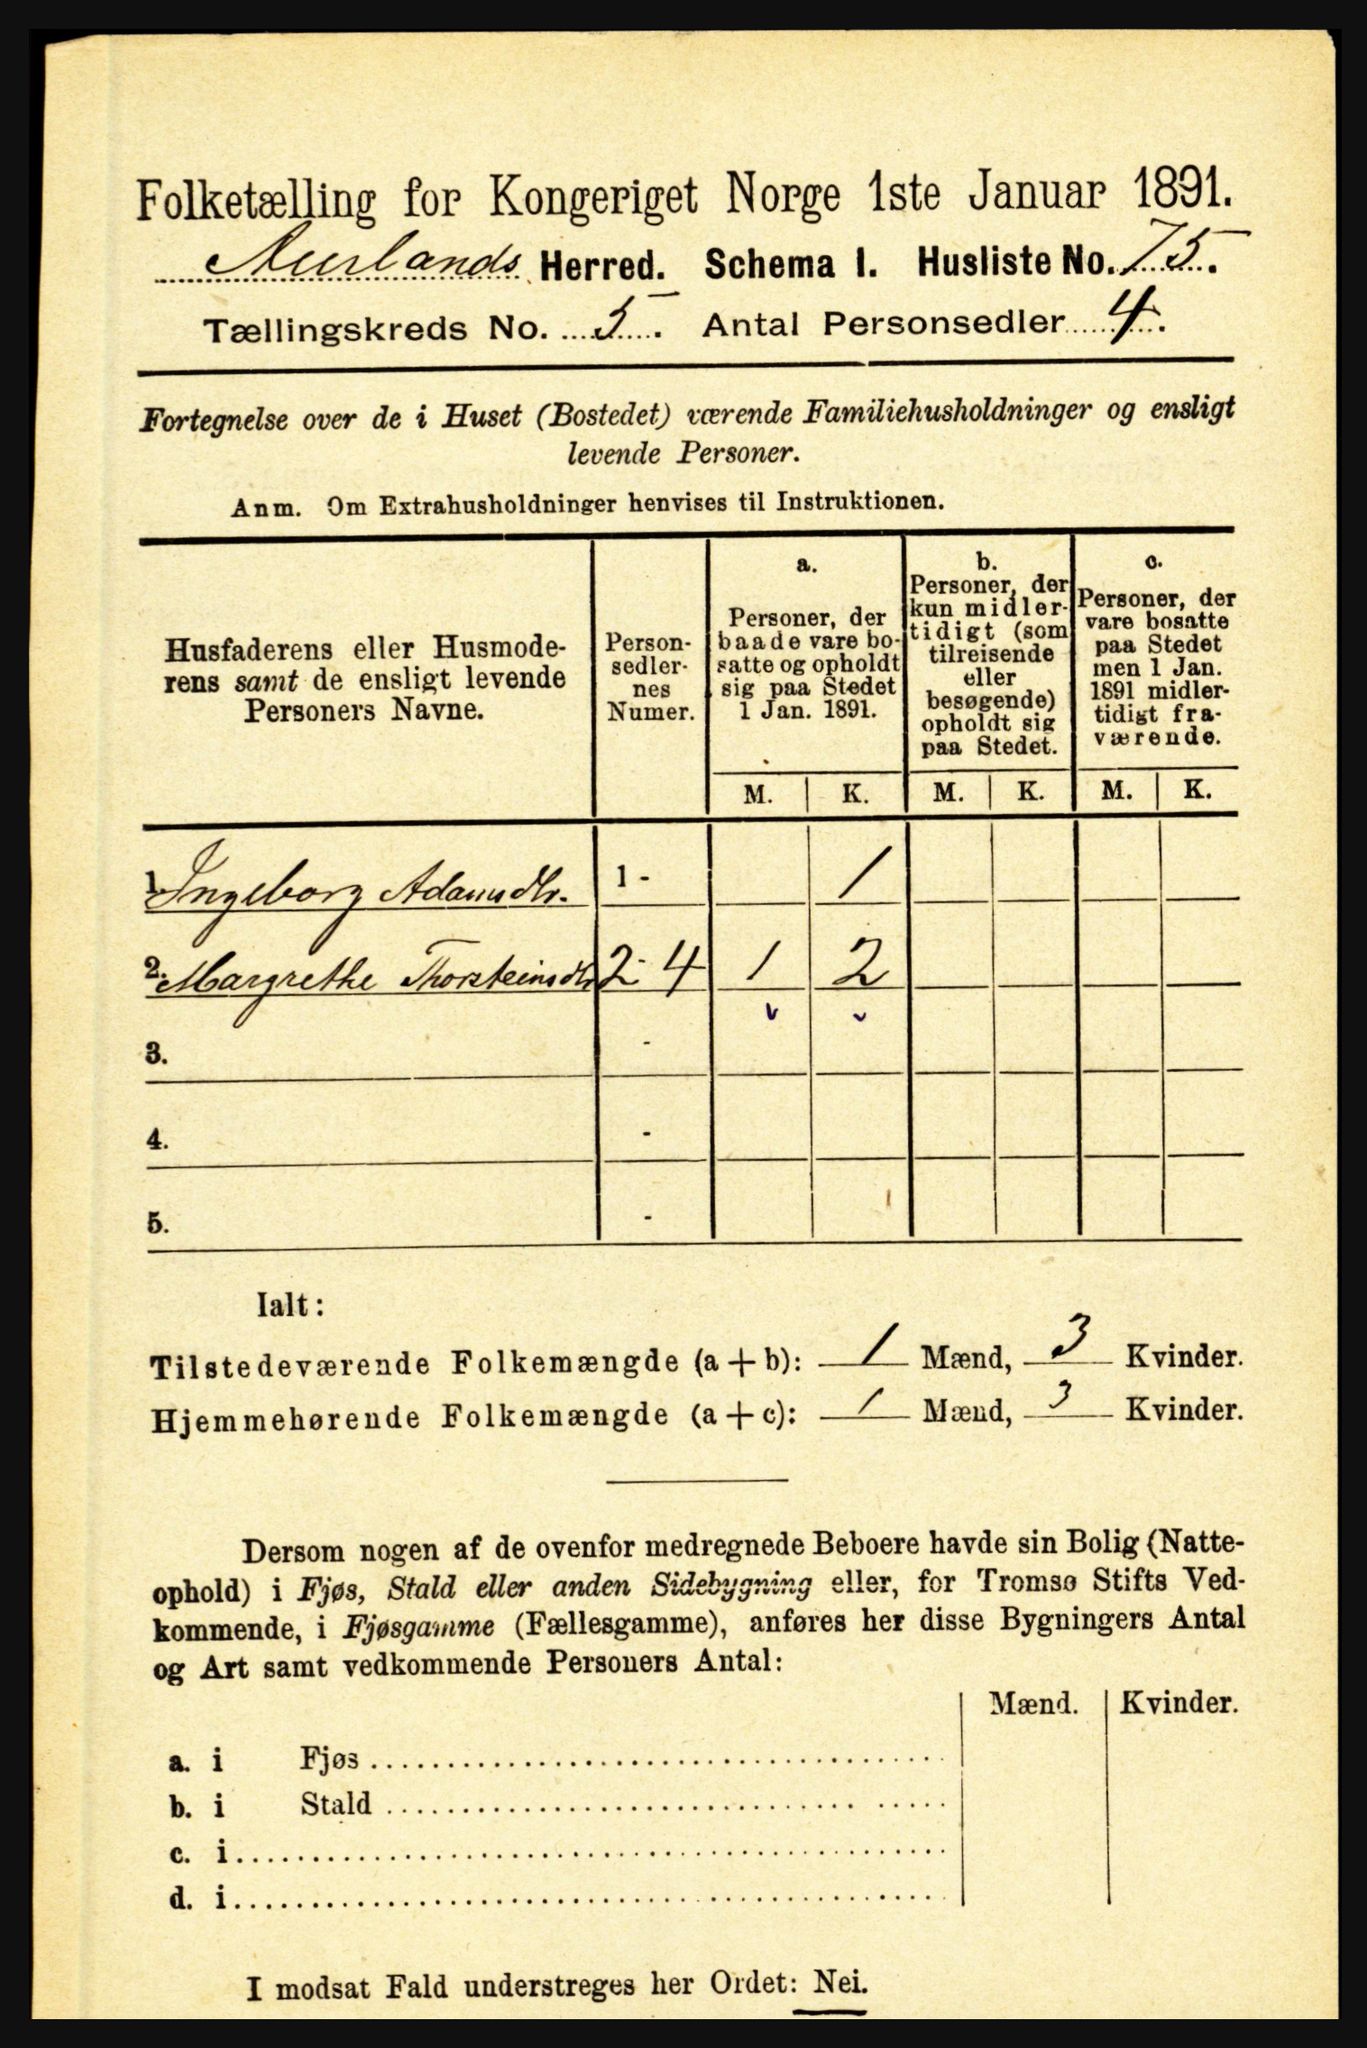 Folketælling for Kongeriget Norge 1ste Januar 1891.
Aurlands Herred. Schema I. Husliste No. 75.
Tællingskreds No. 5. Antal Personsedler 4.
Fortegnelse over de i Huset (Bostedet) værende Familiehusholdninger og ensligt
levende Personer.
Anm. Om Extrahusholdninger henvises til Instruktionen.
Husfaderens eller Husmode-
rens samt de ensligt levende
Personers Navne.
Person-
sedler-
nes
Numer.
a.
Personer, der
baade vare bo-
satte og opholdt
sig paa Stedet
1 Jan. 1891.
b.
Personer, der
kun midler-
tidigt (som
tilreisende
eller
besøgende)
opholdt sig
paa Stedet.
c.
Personer, der
vare bosatte
paa Stedet
men 1 Jan.
1891 midler-
tidigt fra-
værende.
M. K. M. K. M. K.
1. Ingeborg Adamsdtr. 1 - 1
2. Margrethe Thorsteinsdtr 2 - 4 1 2
3. -
4. -
5. -
Ialt:
Tilstedeværende Folkemængde (a + b): 1 Mænd, 3 Kvinder.
Hjemmehørende Folkemængde (a + c): 1 Mænd, 3 Kvinder.
Dersom nogen af de ovenfor medregnede Beboere havde sin Bolig (Natte-
ophold) i Fjøs, Stald eller anden Sidebygning eller, for Tromsø Stifts Ved-
kommende, i Fjøsgamme (Fællesgamme), anføres her disse Bygningers Antal
og Art samt vedkommende Personers Antal:
Mænd. Kvinder.
a. i Fjøs
b. i Stald
c. i
d. i
I modsat Fald understreges her Ordet: Nei.